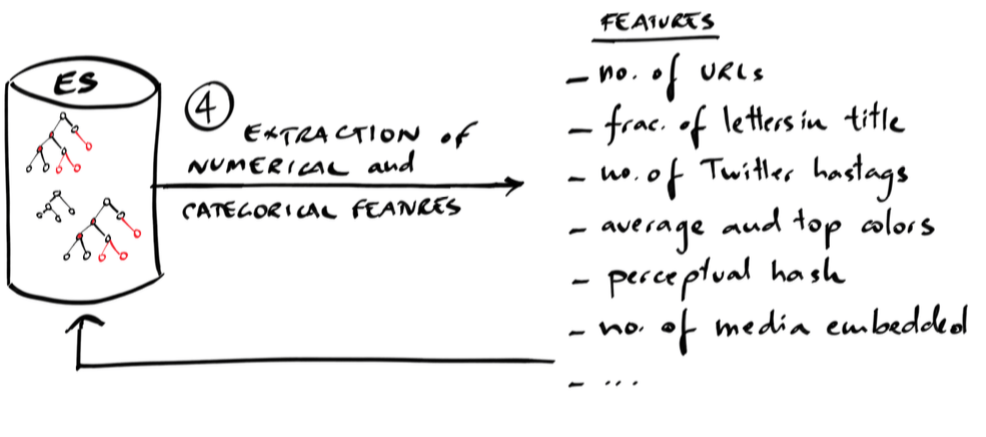 ES
④
EXTRACTION of
NUMERICAL and
CATEGORICAL FEATURES
FEATURES
- no. of URLs
- frac. of letters in title
- no. of Twitter hastags
- average and top colors
- perceptual hash
- no. of media embedded
- ...